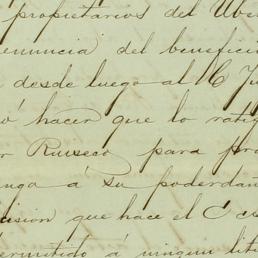 propietarios del Ube
enuncia del benefici
desde luego al C Ju
ó hacer que lo ratif
r Ruiseco para pro
nga á su poderdan
cision que hace el C c
ermitido á ningun lit